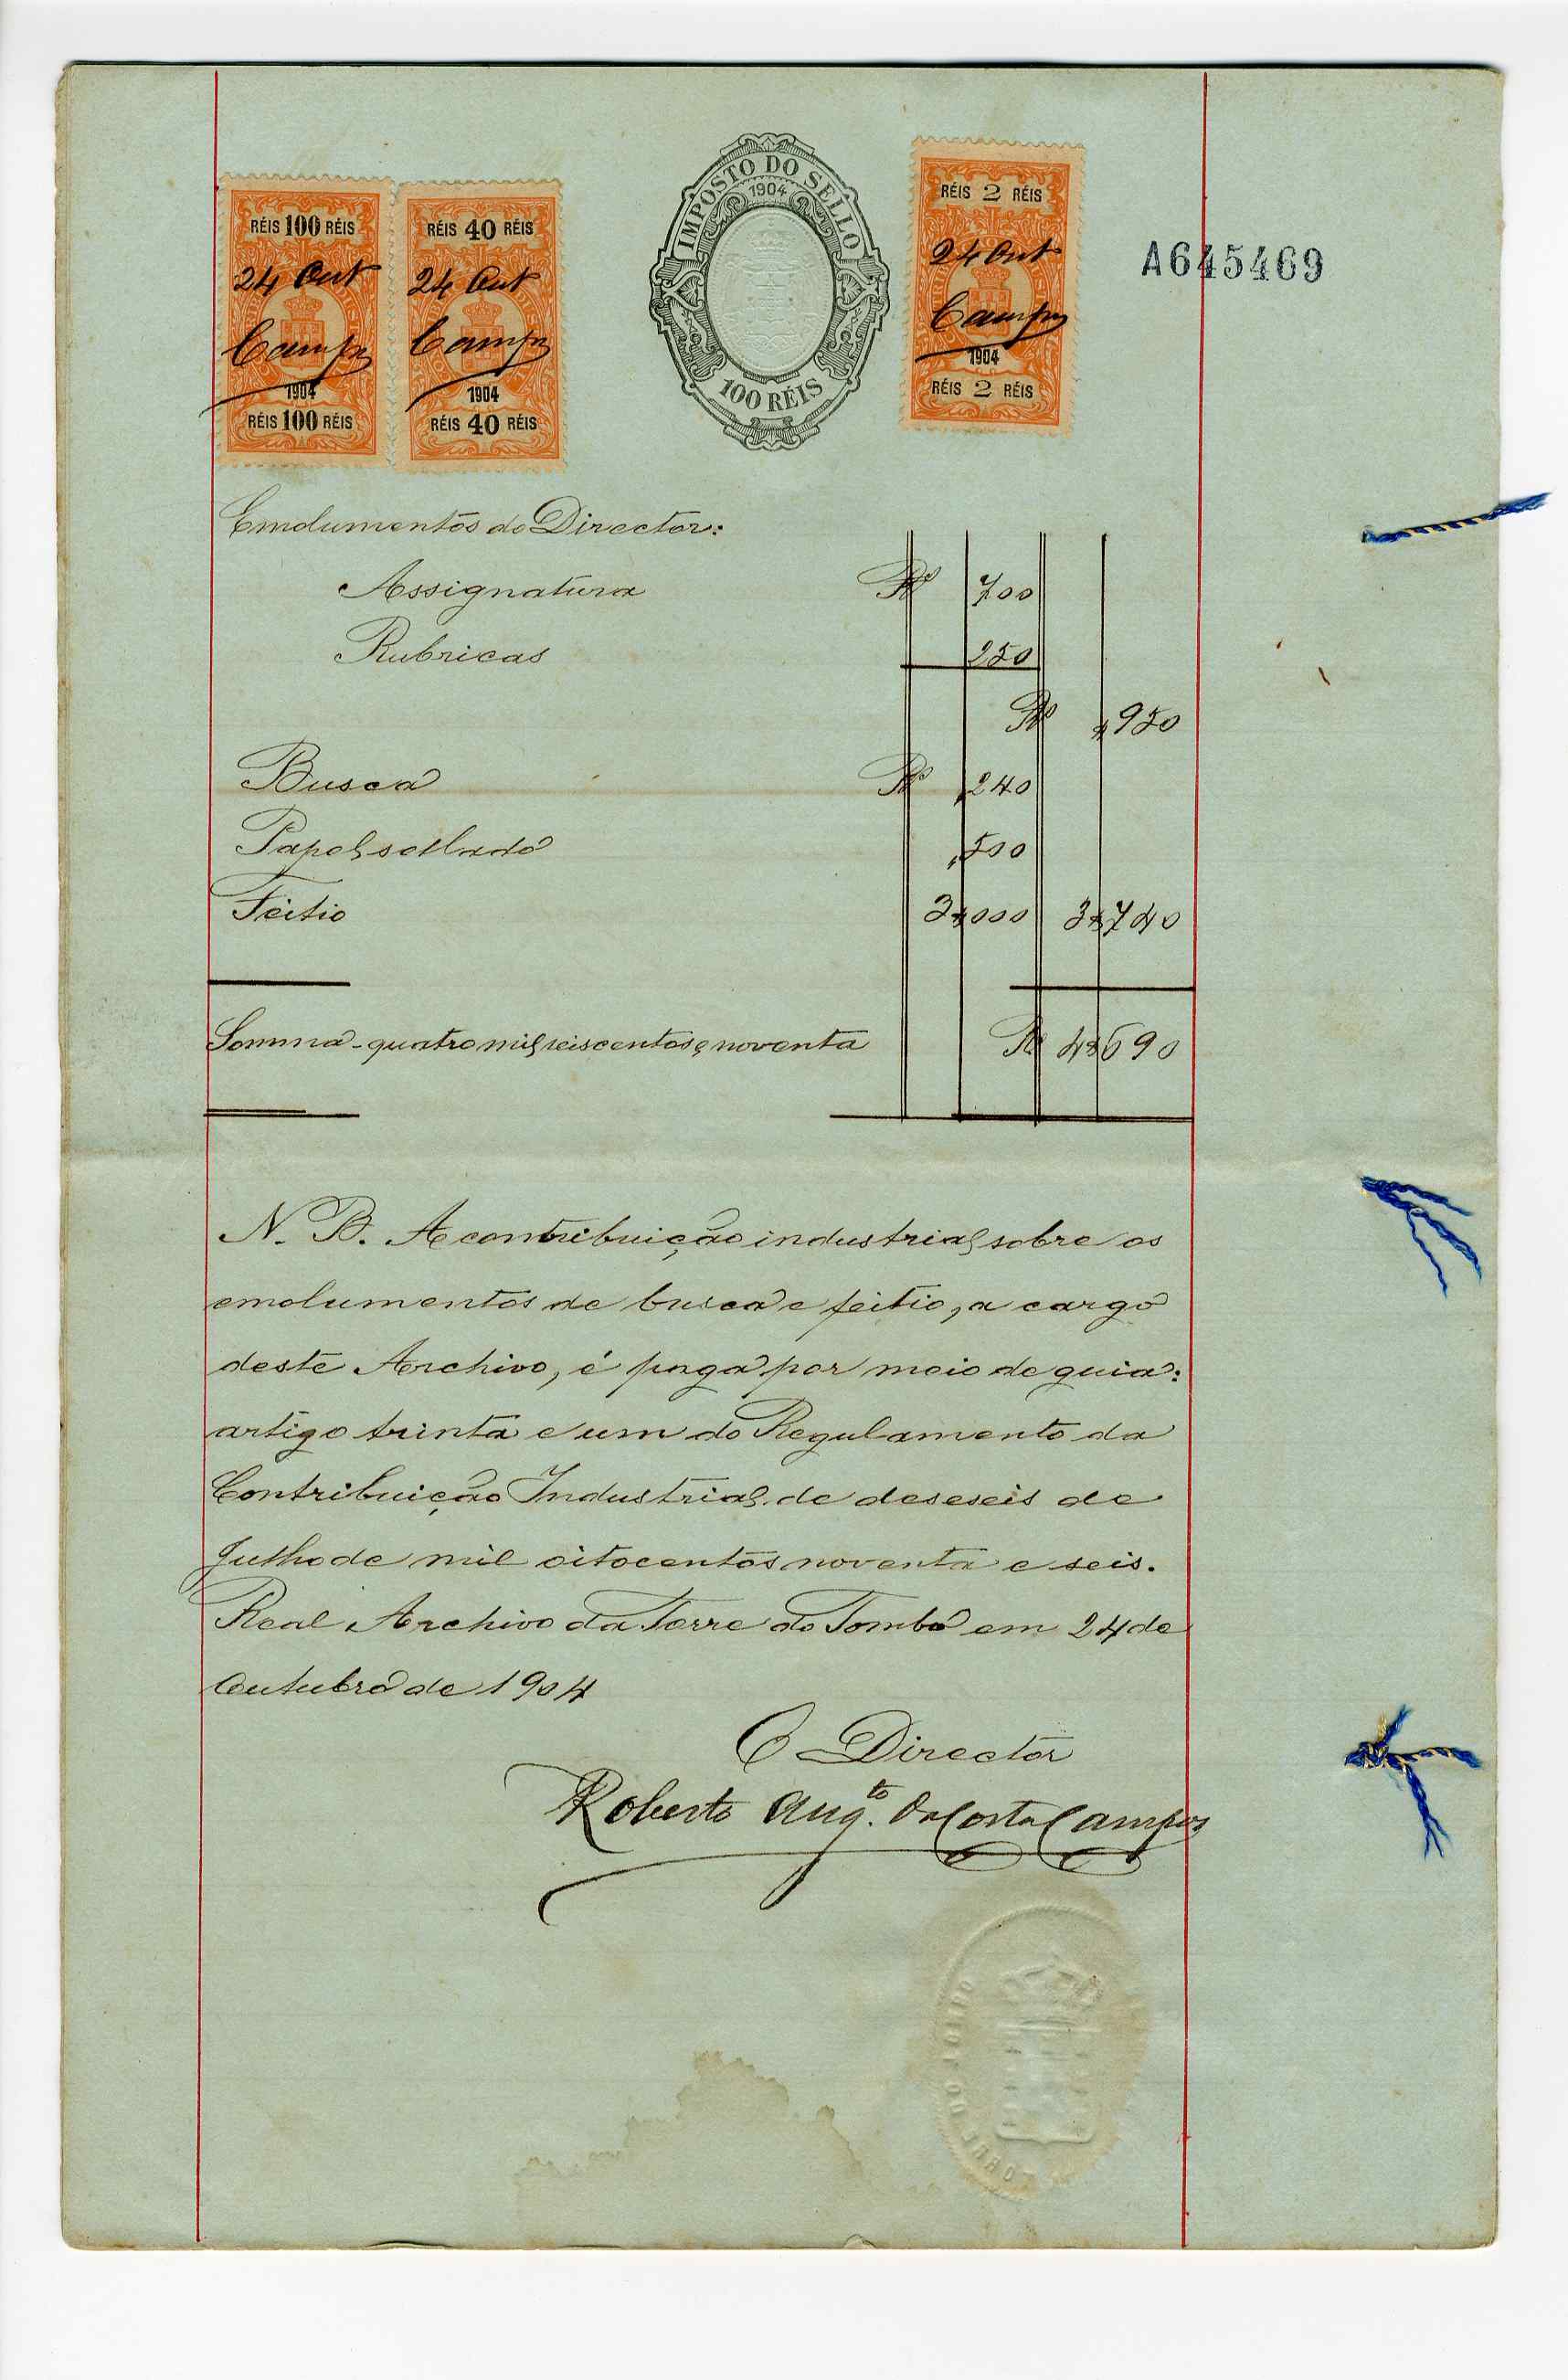 RÉIS 100 RÉIS
24 Out
Campos
1904
RÉIS 100 RÉIS
RÉIS 40 RÉIS
24 Out
Campos
1904
RÉIS 40 RÉIS
IMPOSTO DO SELLO
1904
100 RÉIS
RÉIS 2 RÉIS
24 Out
Campos
1904
RÉIS 2 RÉIS
A645469
Emolumentos do Director:
Assignatura Rs 700
Rubricas 250
Rs $950
Busca Rs $240
Papel sellado $500
Feitio 3$000 3$740
Somma - quatro mil seiscentos e noventa Rs 4$690
N. B. A contribuição industrial sobre os
emolumentos de busca e feitio, a cargo
deste Archivo, é paga por meio de guia:
artigo trinta e um do Regulamento da
Contribuição Industrial de deseseis de
Julho de mil oitocentos noventa e seis.
Real Archivo da Torre do Tombo em 24 de
Outubro de 1904
O Director
Roberto Aug.to da Costa Campos